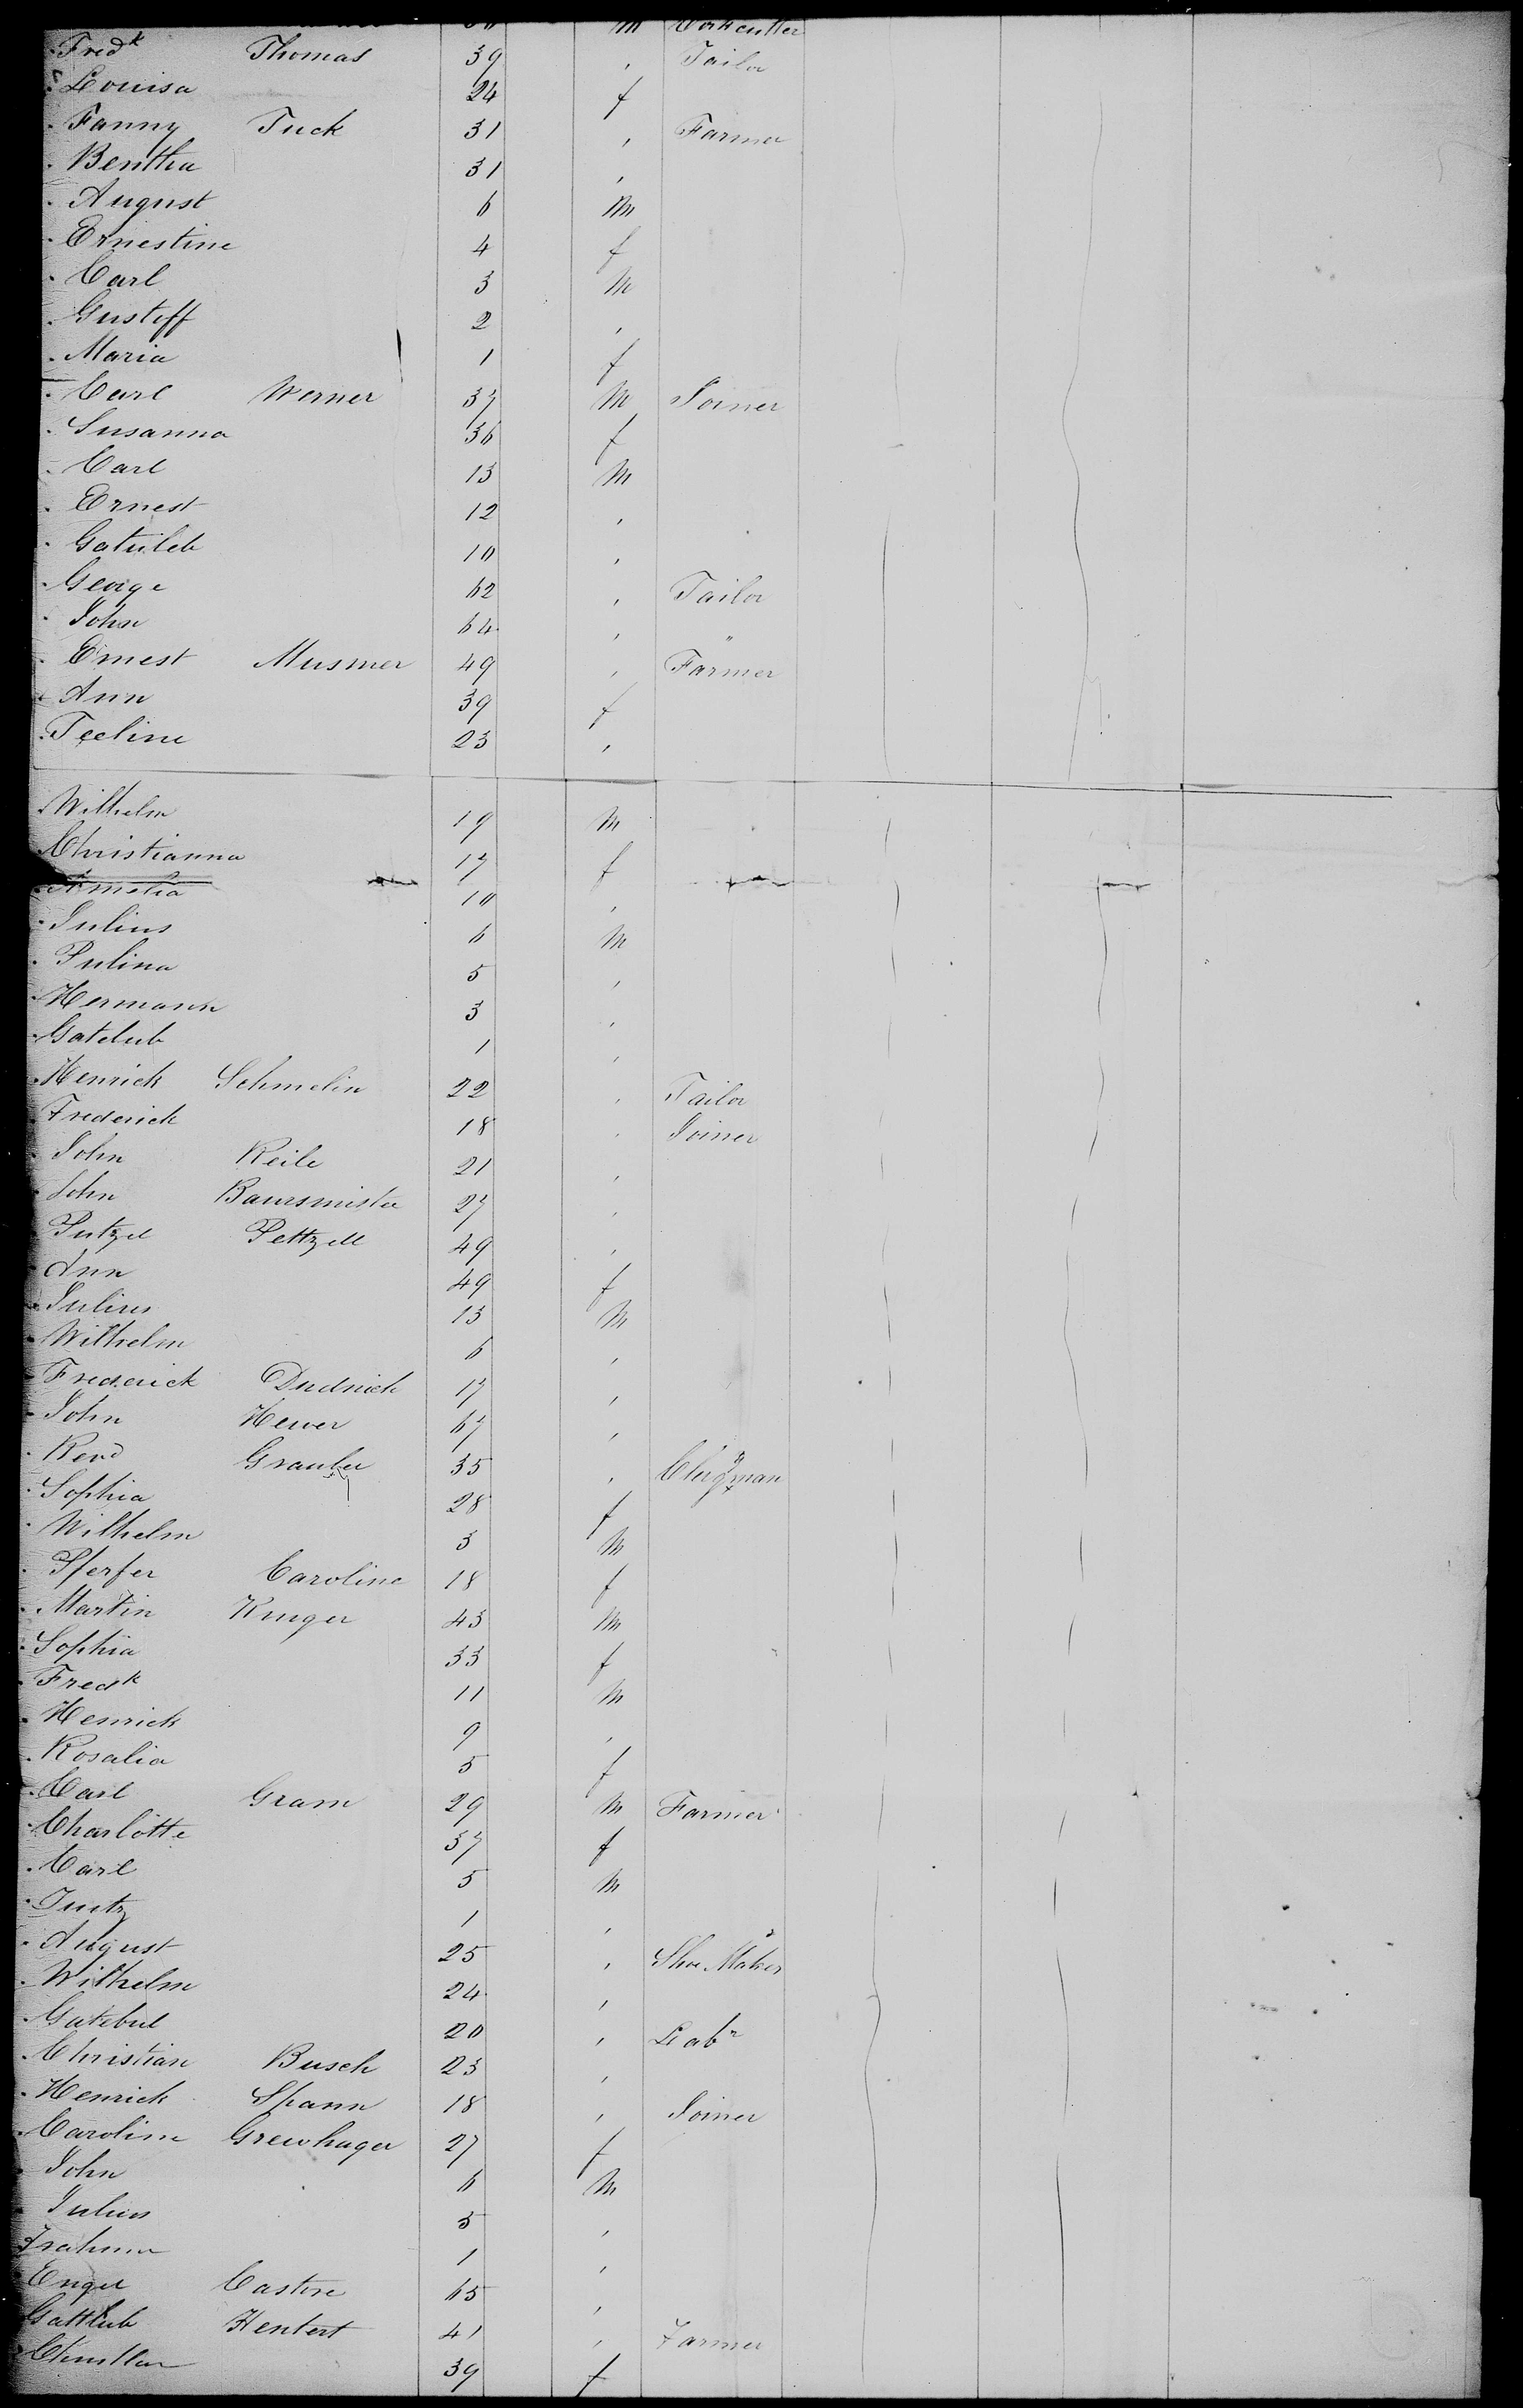 m Corkcutter
Fredk Thomas 39 , Tailor
Louisa 24 f
Fanny Tuck 31 , Farmer
Bentha 31 ,
August 6 m
Ernestine 4 f
Carl 3 m
Gustoff 2 ,
Maria 1 f
Carl Werner 37 m Joiner
Susanna 36 f
Carl 13 m
Ernest 12 ,
Gatuleb 10 ,
George 62 , Tailor
John 64 , "
Ernest Musmer 49 , Farmer
Ann 39 f
Teeline 23 ,
Wilhelm 19 m
Christianna 17 f
Amelia 10 ,
Julius 6 m
Pulina 5 ,
Hermann 3 ,
Gatelub 1 ,
Henrick Schmelin 22 , Tailor
Frederick 18 , Joiner
John Reile 21 ,
John Baursmister 27 ,
Putzel Pettzell 49 ,
Ann 49 f
Julius 13 m
Wilhelm 6 ,
Frederick Dudrick 17 ,
John Hewer 67 ,
Revd Grauber 35 , Clergyman
Sophia 28 f
Wilhelm 3 m
Pferfer Caroline 18 f
Martin Kruger 43 m
Sophia 33 f
Fredk 11 m
Henrick 9 ,
Rosalia 5 f
Carl Gram 29 m Farmer
Charlotte 37 f
Carl 5 m
1 ,
August 25 , Shoe Maker
Wilhelm 24 ,
Gatebul 20 , Labr
Christian Busch 23 ,
Henrick Spann 18 , Joiner
Caroline Grewhager 27 f
John 6 m
Julius 3 ,
1 ,
Engel Castore 65 ,
Gattlub Hentert 41 , Farmer
39 f